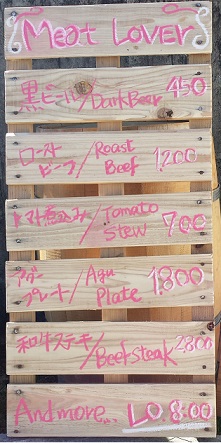 Meat Lover
黒ビール/Dark Beer 450
ロースト
ビーフ/Roast
Beef 1,200
トマト煮込み/Tomato
Stew 700
アグー
プレート/Agu
Plate 1,800
和牛ステーキ/Beefsteak 2,800
And more... LO 8:00